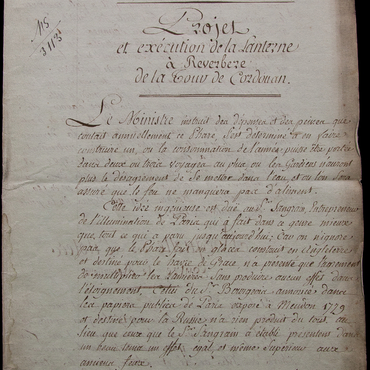 115
3 113
Projet
et exécution de la Lanterne
à Reverbere
de la Tour de Cordouan.
Le Ministre instruit des dépenses et des peines que
coutait annuellement ce Phare, s'est déterminé d'en faire
construire un, ou la consommation de l'année puisse être portée
dans deux ou trois voyages au plus ou les Gardiens n'auront
plus le désagrément de se mettre dans l'eau, et ou l'on sera
assuré que le feu ne manquera pas d'aliment.
Cette idée ingénieuse est due au S.r Sangrain, Entrepreneur
de l'illumination de Paris qui a fait dans ce genre mieux
que tout ce qui a paru jusqu'aujourd'hui; Car on n'ignore
pas, que le Phare fait en glaces construit en Angleterre
et destiné pour le havre de Grace n'a présenté que l'agrément
de lumière sans produire aucun effet dans
l'éloignement. Celui du S.r Bourgeois annoncé dans
les papiers publics de Paris exposé à Meudon 1729
et destiné pour la Russie n'a rien produit du tout au
lieu que ceux que le S.r Sangrain a établi présentent dans
un beau tems un effet égal et même Supérieur aux
anciens feux.